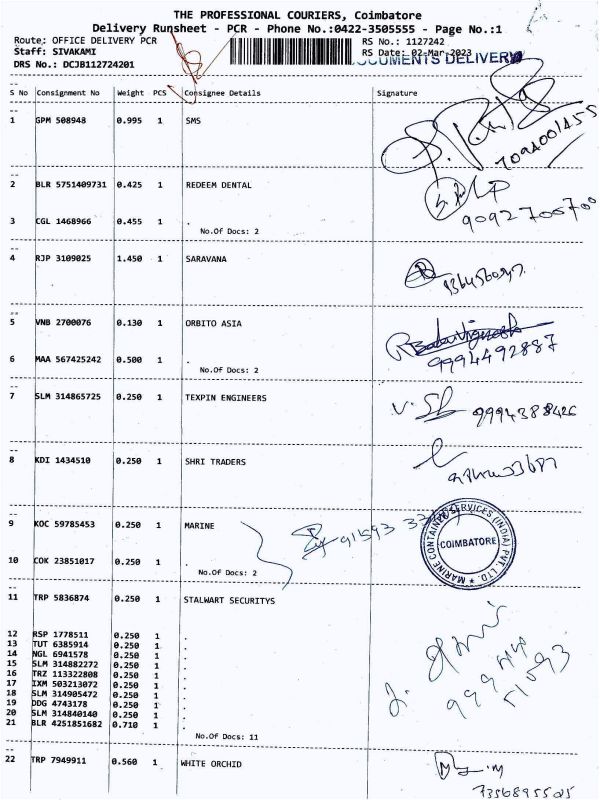 THE PROFESSIONAL COURIERS, Coimbatore
Delivery Runsheet - PCR - Phone No.:0422-3505555 - Page No.:1
Route: OFFICE DELIVERY PCR
RS No.: 1127242
Staff: SIVAKAMI
RS Date: 02-Mar-2023
DOCUMENTS DELIVERY
DRS No.: DCJB112724201
S No Consignment No Weight PCS Consignee Details Signature
1 GPM 508948 0.995 1 SMS
7094001455
2 BLR 5751409731 0.425 1 REDEEM DENTAL
9092700700
3 CGL 1468966 0.455 1 .
No.Of Docs: 2
4 RJP 3109025 1.450 1 SARAVANA
5 VNB 2700076 0.130 1 ORBITO ASIA
BalaVignesh
9994492887
6 MAA 567425242 0.500 1 .
No.Of Docs: 2
7 SLM 314865725 0.250 1 TEXPIN ENGINEERS
9994388426
8 KDI 1434510 0.250 1 SHRI TRADERS
9 KOC 59785453 0.250 1 MARINE
MARINE CONTAINER SERVICES (INDIA) PVT. LTD.
COIMBATORE
10 COK 23851017 0.250 1 .
No.Of Docs: 2
11 TRP 5836874 0.250 1 STALWART SECURITYS
12 RSP 1778511 0.250 1 .
13 TUT 6385914 0.250 1 .
14 NGL 6941578 0.250 1 .
15 SLM 314882272 0.250 1 .
16 TRZ 113322808 0.250 1 .
17 IXM 503213072 0.250 1 .
18 SLM 314905472 0.250 1 .
19 DDG 4743178 0.250 1 .
20 SLM 314840140 0.250 1 .
21 BLR 4251851682 0.710 1 .
No.Of Docs: 11
22 TRP 7949911 0.560 1 WHITE ORCHID
7356895505